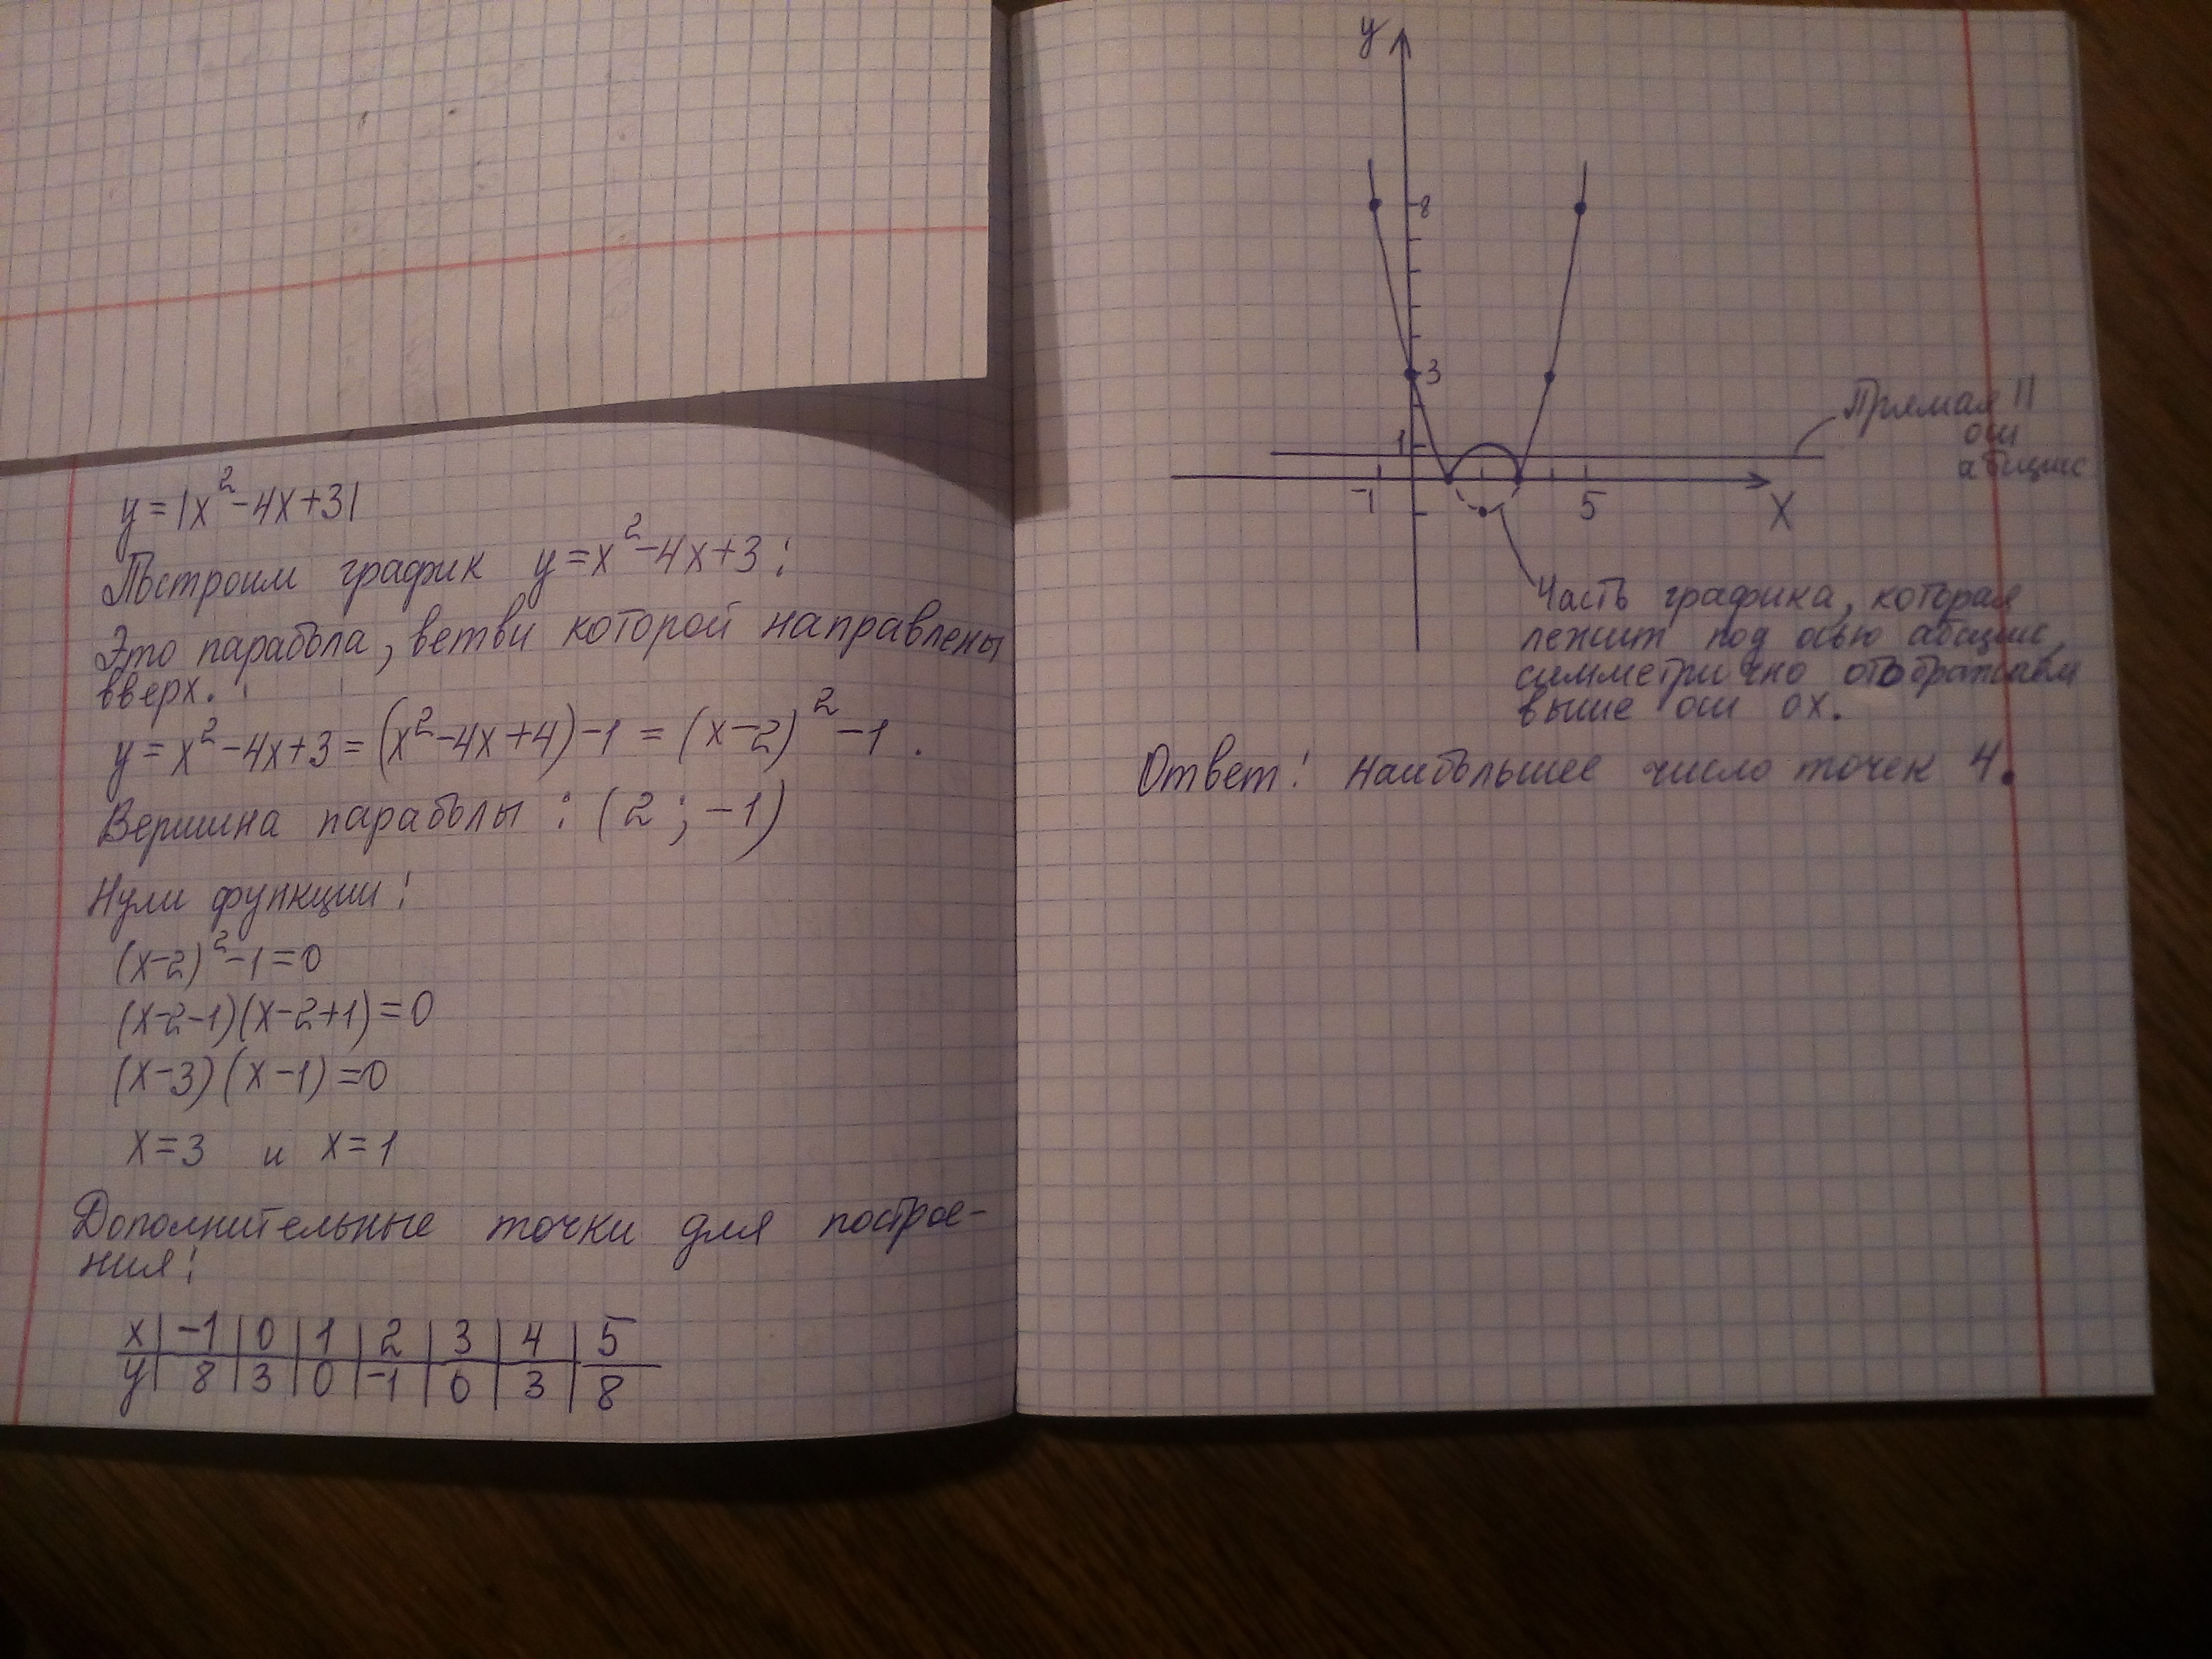 y=|x²-4x+3|
Построим график y=x²-4x+3:
Это парабола, ветви которой направлены
вверх.
y=x²-4x+3=(x²-4x+4)-1=(x-2)²-1.
Вершина параболы: (2;-1)
Нули функции:
(x-2)²-1=0
(x-2-1)(x-2+1)=0
(x-3)(x-1)=0
x=3 и x=1
Дополнительные точки для построе-
ния:
x|-1|0|1|2|3|4|5
y|8|3|0|-1|0|3|8
y
8
3
1
-1 5 X
Прямая ||
оси
абсцисс
Часть графика, которая
лежит под осью абсцисс,
симметрично отображаем
выше оси OX.
Ответ: наибольшее число точек 4.